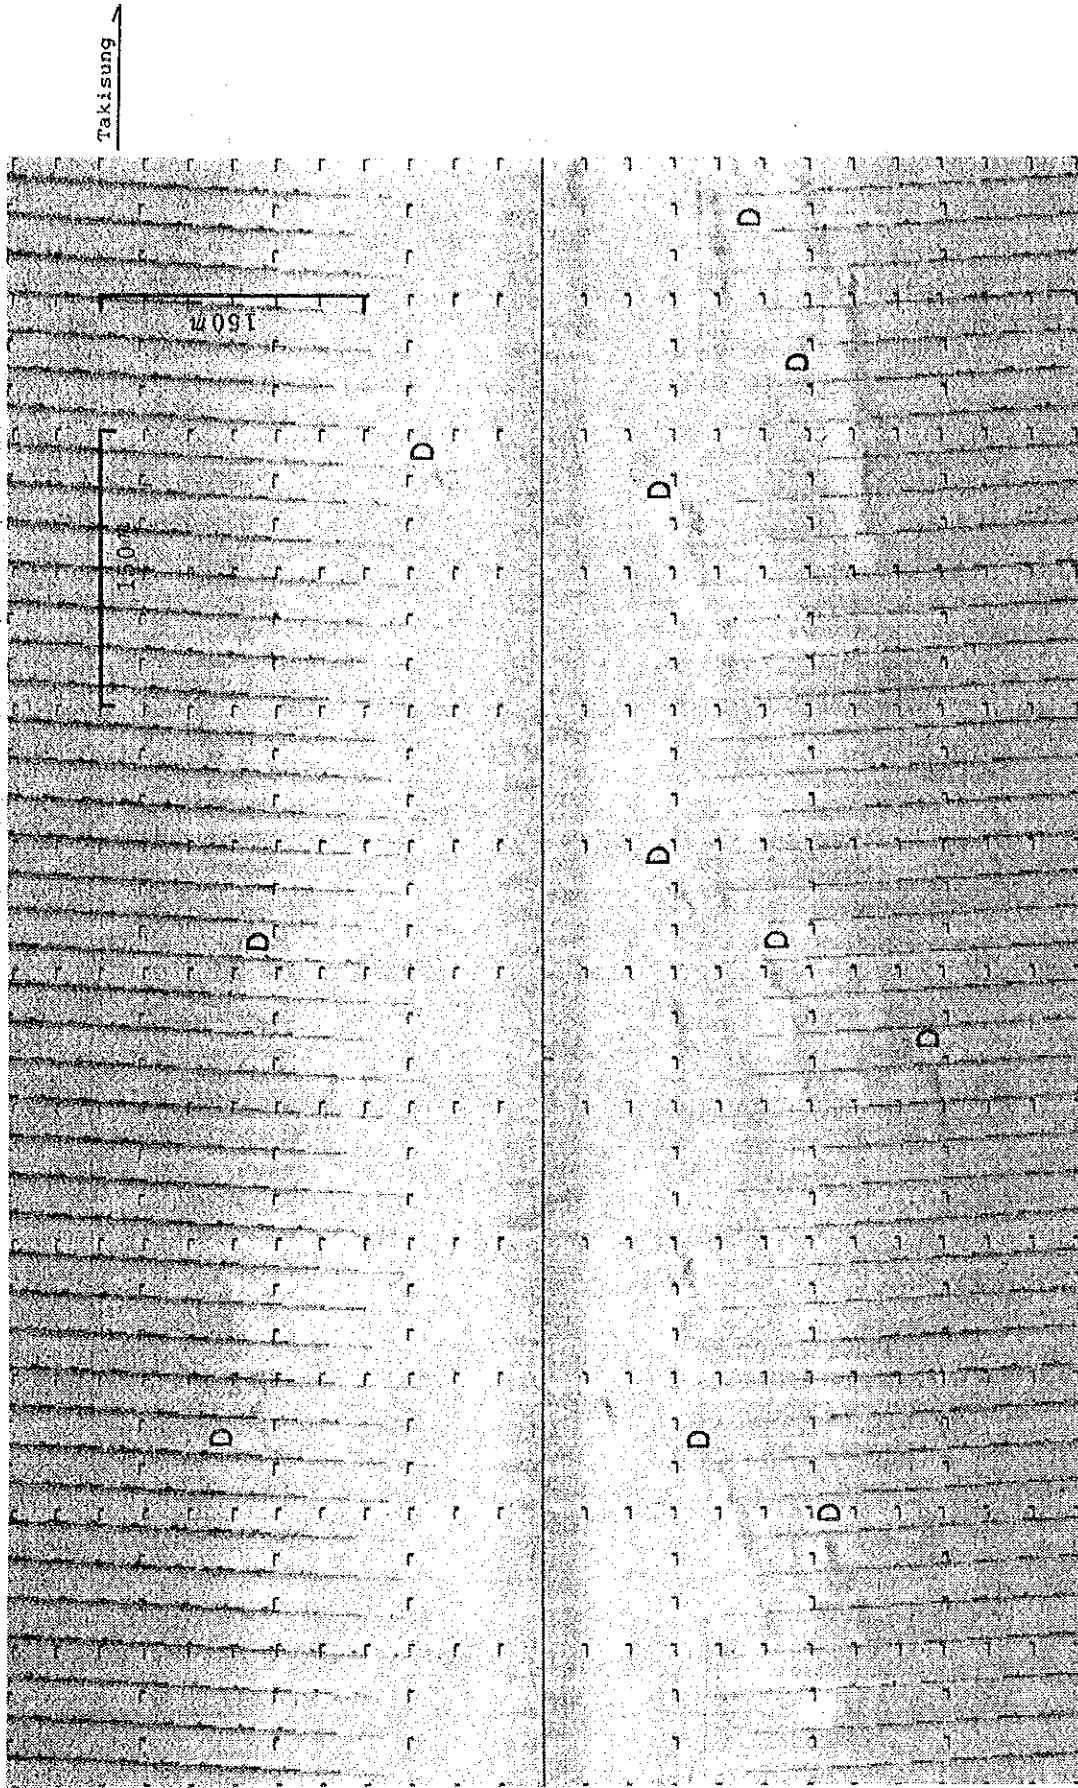 Takisung
150m
150m
D
D
D
D
D
D
D
D
D
D
D